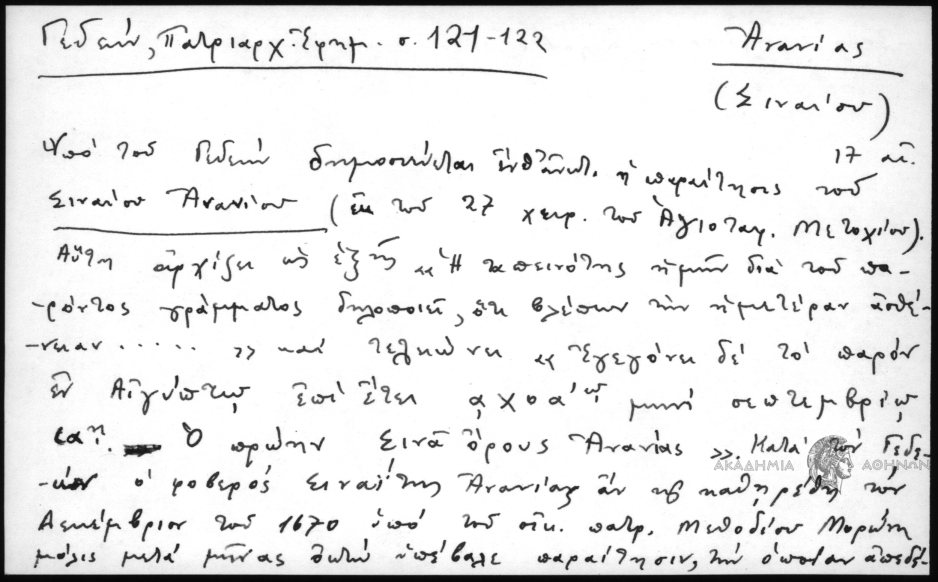 Γεδεών, Πατριαρχ. Ἐφημ. σ. 121-122
Ἀνανίας
(Σιναίου)
17 αἰ.
Ὑπό τοῦ Γεδεών δημοσιεύεται ἐνταῦθα ἡ παραίτησις τοῦ
Σιναίου Ἀνανίου (ἐκ τοῦ 27 χειρ. τοῦ Ἁγιοταφ. Μετοχίου).
Αὕτη ἀρχίζει ὡς ἑξῆς «Ἡ ταπεινότης ἡμῶν διά τοῦ πα-
-ρόντος γράμματος δηλοποιεῖ, ὅτι βλέπων τήν ἡμετέραν ἀσθέ-
-νειαν ...... » καί τελειώνει «Ἐγεγόνει δέ τό παρόν
ἐν Αἰγύπτῳ ἐπί ἔτει αχοαῳ μηνί σεπτεμβρίῳ
καῃ. Ὁ πρώην Σινᾶ ὄρους Ἀνανίας ». Κατά τόν Γεδε-
-ών ὁ φοβερός Σιναΐτης Ἀνανίας ἄν καί καθῃρέθη τόν
Δεκέμβριον τοῦ 1670 ὑπό τοῦ οἰκ. πατρ. Μεθοδίου Μορώνη
μόλις μετά μῆνας ὑπέβαλε παραίτησιν, τήν ὁποίαν ἀπεδέ-
ΑΚΑΔΗΜΙΑ ΑΘΗΝΩΝ